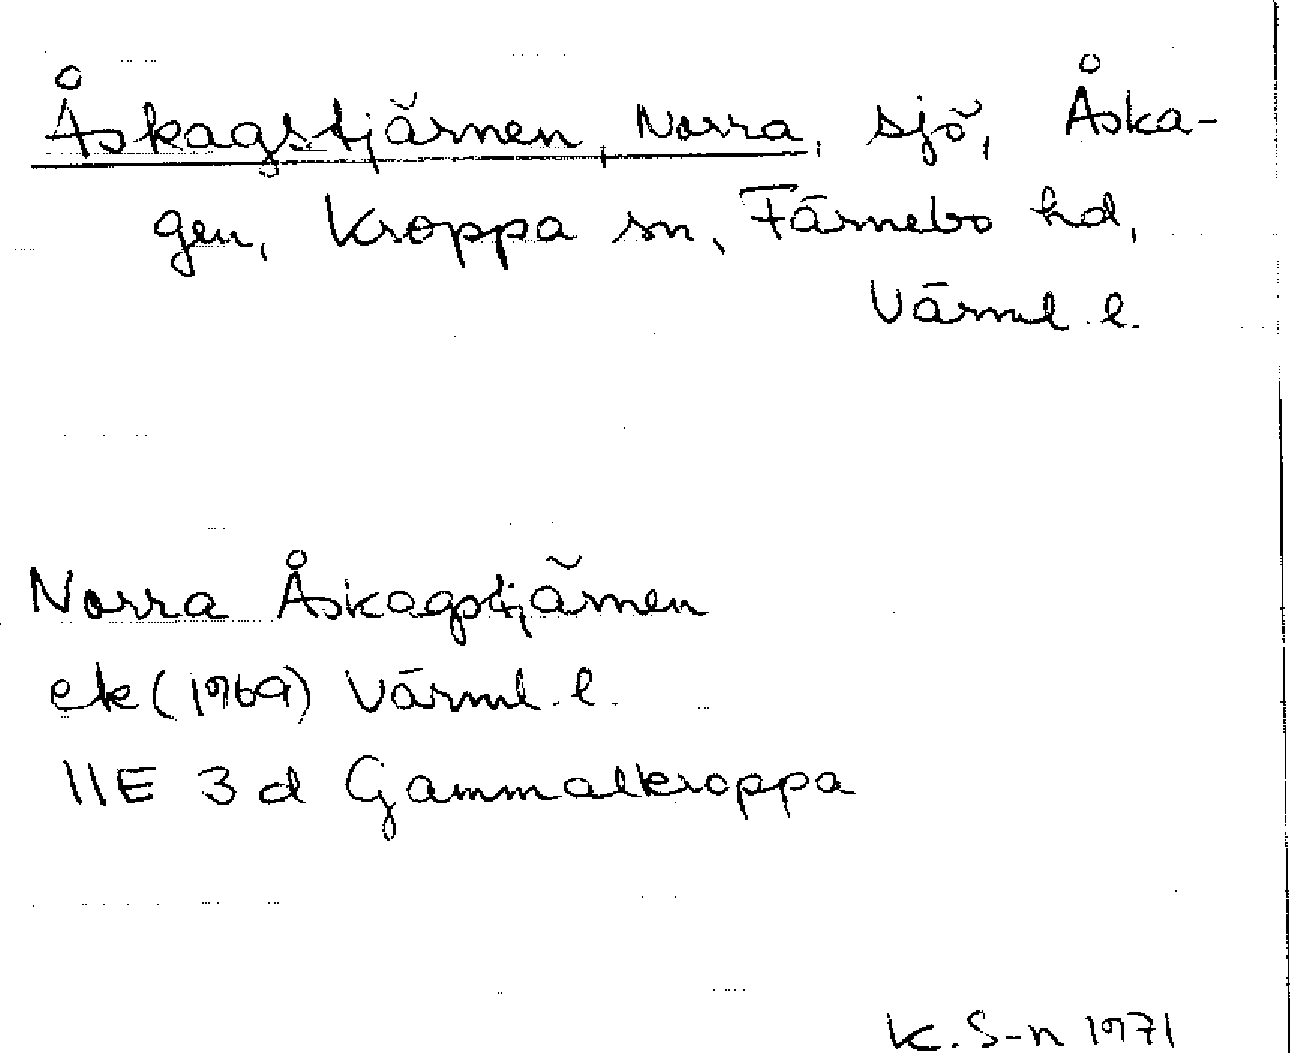 Åskagstjärnen, Norra, sjö, Åska-
gen, Kroppa sn, Färnebo hd,
Värml. l.
Norra Åskagstjärnen
ek (1969) Värml. l.
11E 3d Gammalkroppa
K. S-n 1971